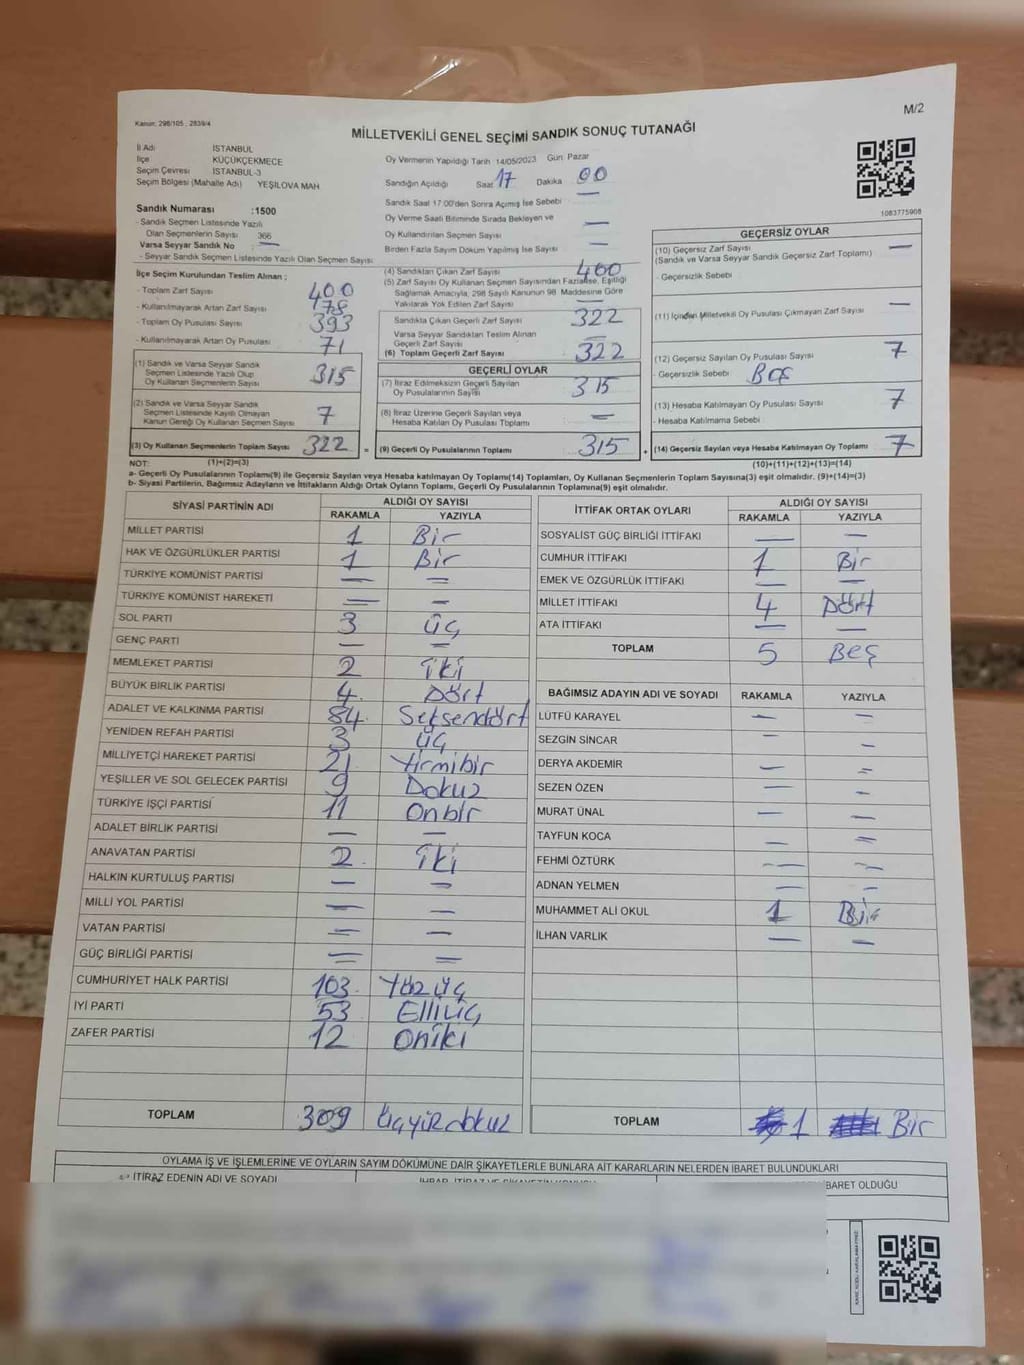 Kanun: 298/105 , 2839/4
M/2
MİLLETVEKİLİ GENEL SEÇİMİ SANDIK SONUÇ TUTANAĞI
İl Adı İSTANBUL
İlçe KÜÇÜKÇEKMECE
Seçim Çevresi İSTANBUL-3
Seçim Bölgesi (Mahalle Adı) YEŞİLOVA MAH
Oy Vermenin Yapıldığı Tarih 14/05/2023 Gün Pazar
Sandığın Açıldığı Saat 17 Dakika 00
Sandık Saat 17:00'den Sonra Açımış İse Sebebi —
Oy Verme Saati Bitiminde Sırada Bekleyen ve
Oy Kullandırılan Seçmen Sayısı —
Birden Fazla Sayım Döküm Yapılmış İse Sayısı —
1083775908
Sandık Numarası :1500
- Sandık Seçmen Listesinde Yazılı
Olan Seçmenlerin Sayısı 366
Varsa Seyyar Sandık No —
- Seyyar Sandık Seçmen Listesinde Yazılı Olan Seçmen Sayısı
İlçe Seçim Kurulundan Teslim Alınan ;
- Toplam Zarf Sayısı 400
- Kullanılmayarak Artan Zarf Sayısı 78
- Toplam Oy Pusulası Sayısı 393
- Kullanılmayarak Artan Oy Pusulası 71
(1) Sandık ve Varsa Seyyar Sandık
Seçmen Listesinde Yazılı Olup
Oy Kullanan Seçmenlerin Sayısı 315
(2) Sandık ve Varsa Seyyar Sandık
Seçmen Listesinde Kayıtlı Olmayan
Kanun Gereği Oy Kullanan Seçmen Sayısı 7
(3) Oy Kullanan Seçmenlerin Toplam Sayısı 322
(1)+(2)=(3)
(4) Sandıktan Çıkan Zarf Sayısı 400
(5) Zarf Sayısı Oy Kullanan Seçmen Sayısından Fazlaİse, Eşitliği
Sağlamak Amacıyla, 298 Sayılı Kanunun 98. Maddesine Göre
Yakılarak Yok Edilen Zarf Sayısı —
Sandıkta Çıkan Geçerli Zarf Sayısı 322
Varsa Seyyar Sandıktan Teslim Alınan
Geçerli Zarf Sayısı —
(6) Toplam Geçerli Zarf Sayısı 322
GEÇERLİ OYLAR
(7) İtiraz Edilmeksizin Geçerli Sayılan
Oy Pusulalarının Sayısı 315
(8) İtiraz Üzerine Geçerli Sayılan veya
Hesaba Katılan Oy Pusulası Toplamı —
= (9) Geçerli Oy Pusulalarının Toplamı 315
GEÇERSİZ OYLAR
(10) Geçersiz Zarf Sayısı —
(Sandık ve Varsa Seyyar Sandık Geçersiz Zarf Toplamı)
- Geçersizlik Sebebi
(11) İçinden Milletvekili Oy Pusulası Çıkmayan Zarf Sayısı —
(12) Geçersiz Sayılan Oy Pusulası Sayısı 7
- Geçersizlik Sebebi Boş
(13) Hesaba Katılmayan Oy Pusulası Sayısı 7
- Hesaba Katılmama Sebebi
+ (14) Geçersiz Sayılan veya Hesaba Katılmayan Oy Toplamı 7
(10)+(11)+(12)+(13)=(14)
NOT:
a- Geçerli Oy Pusulalarının Toplamı(9) ile Geçersiz Sayılan veya Hesaba katılmayan Oy Toplamı(14) Toplamları, Oy Kullanan Seçmenlerin Toplam Sayısına(3) eşit olmalıdır. (9)+(14)=(3)
b- Siyasi Partilerin, Bağımsız Adayların ve İttifakların Aldığı Ortak Oyların Toplamı, Geçerli Oy Pusulalarının Toplamına(9) eşit olmalıdır.
SİYASİ PARTİNİN ADI ALDIĞI OY SAYISI
RAKAMLA YAZIYLA
MİLLET PARTİSİ 1 Bir
HAK VE ÖZGÜRLÜKLER PARTİSİ 1 Bir
TÜRKİYE KOMÜNİST PARTİSİ — —
TÜRKİYE KOMÜNİST HAREKETİ — —
SOL PARTİ 3 üç
GENÇ PARTİ — —
MEMLEKET PARTİSİ 2 iki
BÜYÜK BİRLİK PARTİSİ 4 Dört
ADALET VE KALKINMA PARTİSİ 84 Seksendört
YENİDEN REFAH PARTİSİ 3 üç
MİLLİYETÇİ HAREKET PARTİSİ 21 Yirmibir
YEŞİLLER VE SOL GELECEK PARTİSİ 9 Dokuz
TÜRKİYE İŞÇİ PARTİSİ 11 Onbir
ADALET BİRLİK PARTİSİ — —
ANAVATAN PARTİSİ 2 iki
HALKIN KURTULUŞ PARTİSİ — —
MİLLİ YOL PARTİSİ — —
VATAN PARTİSİ — —
GÜÇ BİRLİĞİ PARTİSİ — —
CUMHURİYET HALK PARTİSİ 103 Yüzüç
İYİ PARTİ 53 Elliüç
ZAFER PARTİSİ 12 Oniki
TOPLAM 309 üçyüzdokuz
İTTİFAK ORTAK OYLARI ALDIĞI OY SAYISI
RAKAMLA YAZIYLA
SOSYALİST GÜÇ BİRLİĞİ İTTİFAKI — —
CUMHUR İTTİFAKI 1 Bir
EMEK VE ÖZGÜRLÜK İTTİFAKI — —
MİLLET İTTİFAKI 4 Dört
ATA İTTİFAKI — —
TOPLAM 5 Beş
BAĞIMSIZ ADAYIN ADI VE SOYADI RAKAMLA YAZIYLA
LÜTFÜ KARAYEL — —
SEZGİN SİNCAR — —
DERYA AKDEMİR — —
SEZEN ÖZEN — —
MURAT ÜNAL — —
TAYFUN KOCA — —
FEHMİ ÖZTÜRK — —
ADNAN YELMEN — —
MUHAMMET ALİ OKUL 1 Bir
İLHAN VARLIK — —
TOPLAM 1 Bir
OYLAMA İŞ VE İŞLEMLERİNE VE OYLARIN SAYIM DÖKÜMÜNE DAİR ŞİKAYETLERLE BUNLARA AİT KARARLARIN NELERDEN İBARET BULUNDUKLARI
İTİRAZ EDENİN ADI VE SOYADI
BARET OLDUĞU